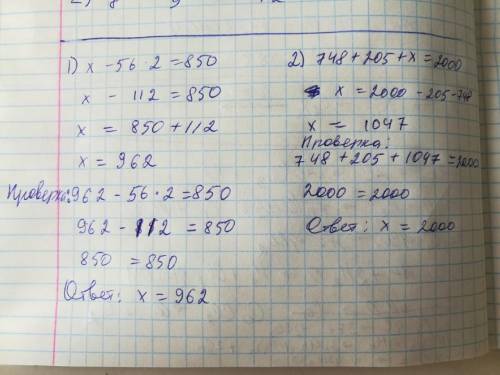 1) x - 56 · 2 = 850
x - 112 = 850
x = 850 + 112
x = 962
Проверка: 962 - 56 · 2 = 850
962 - 112 = 850
850 = 850
Ответ: x = 962
2) 748 + 205 + x = 2000
x = 2000 - 205 - 748
x = 1047
Проверка:
748 + 205 + 1047 = 2000
2000 = 2000
Ответ: x = 2000